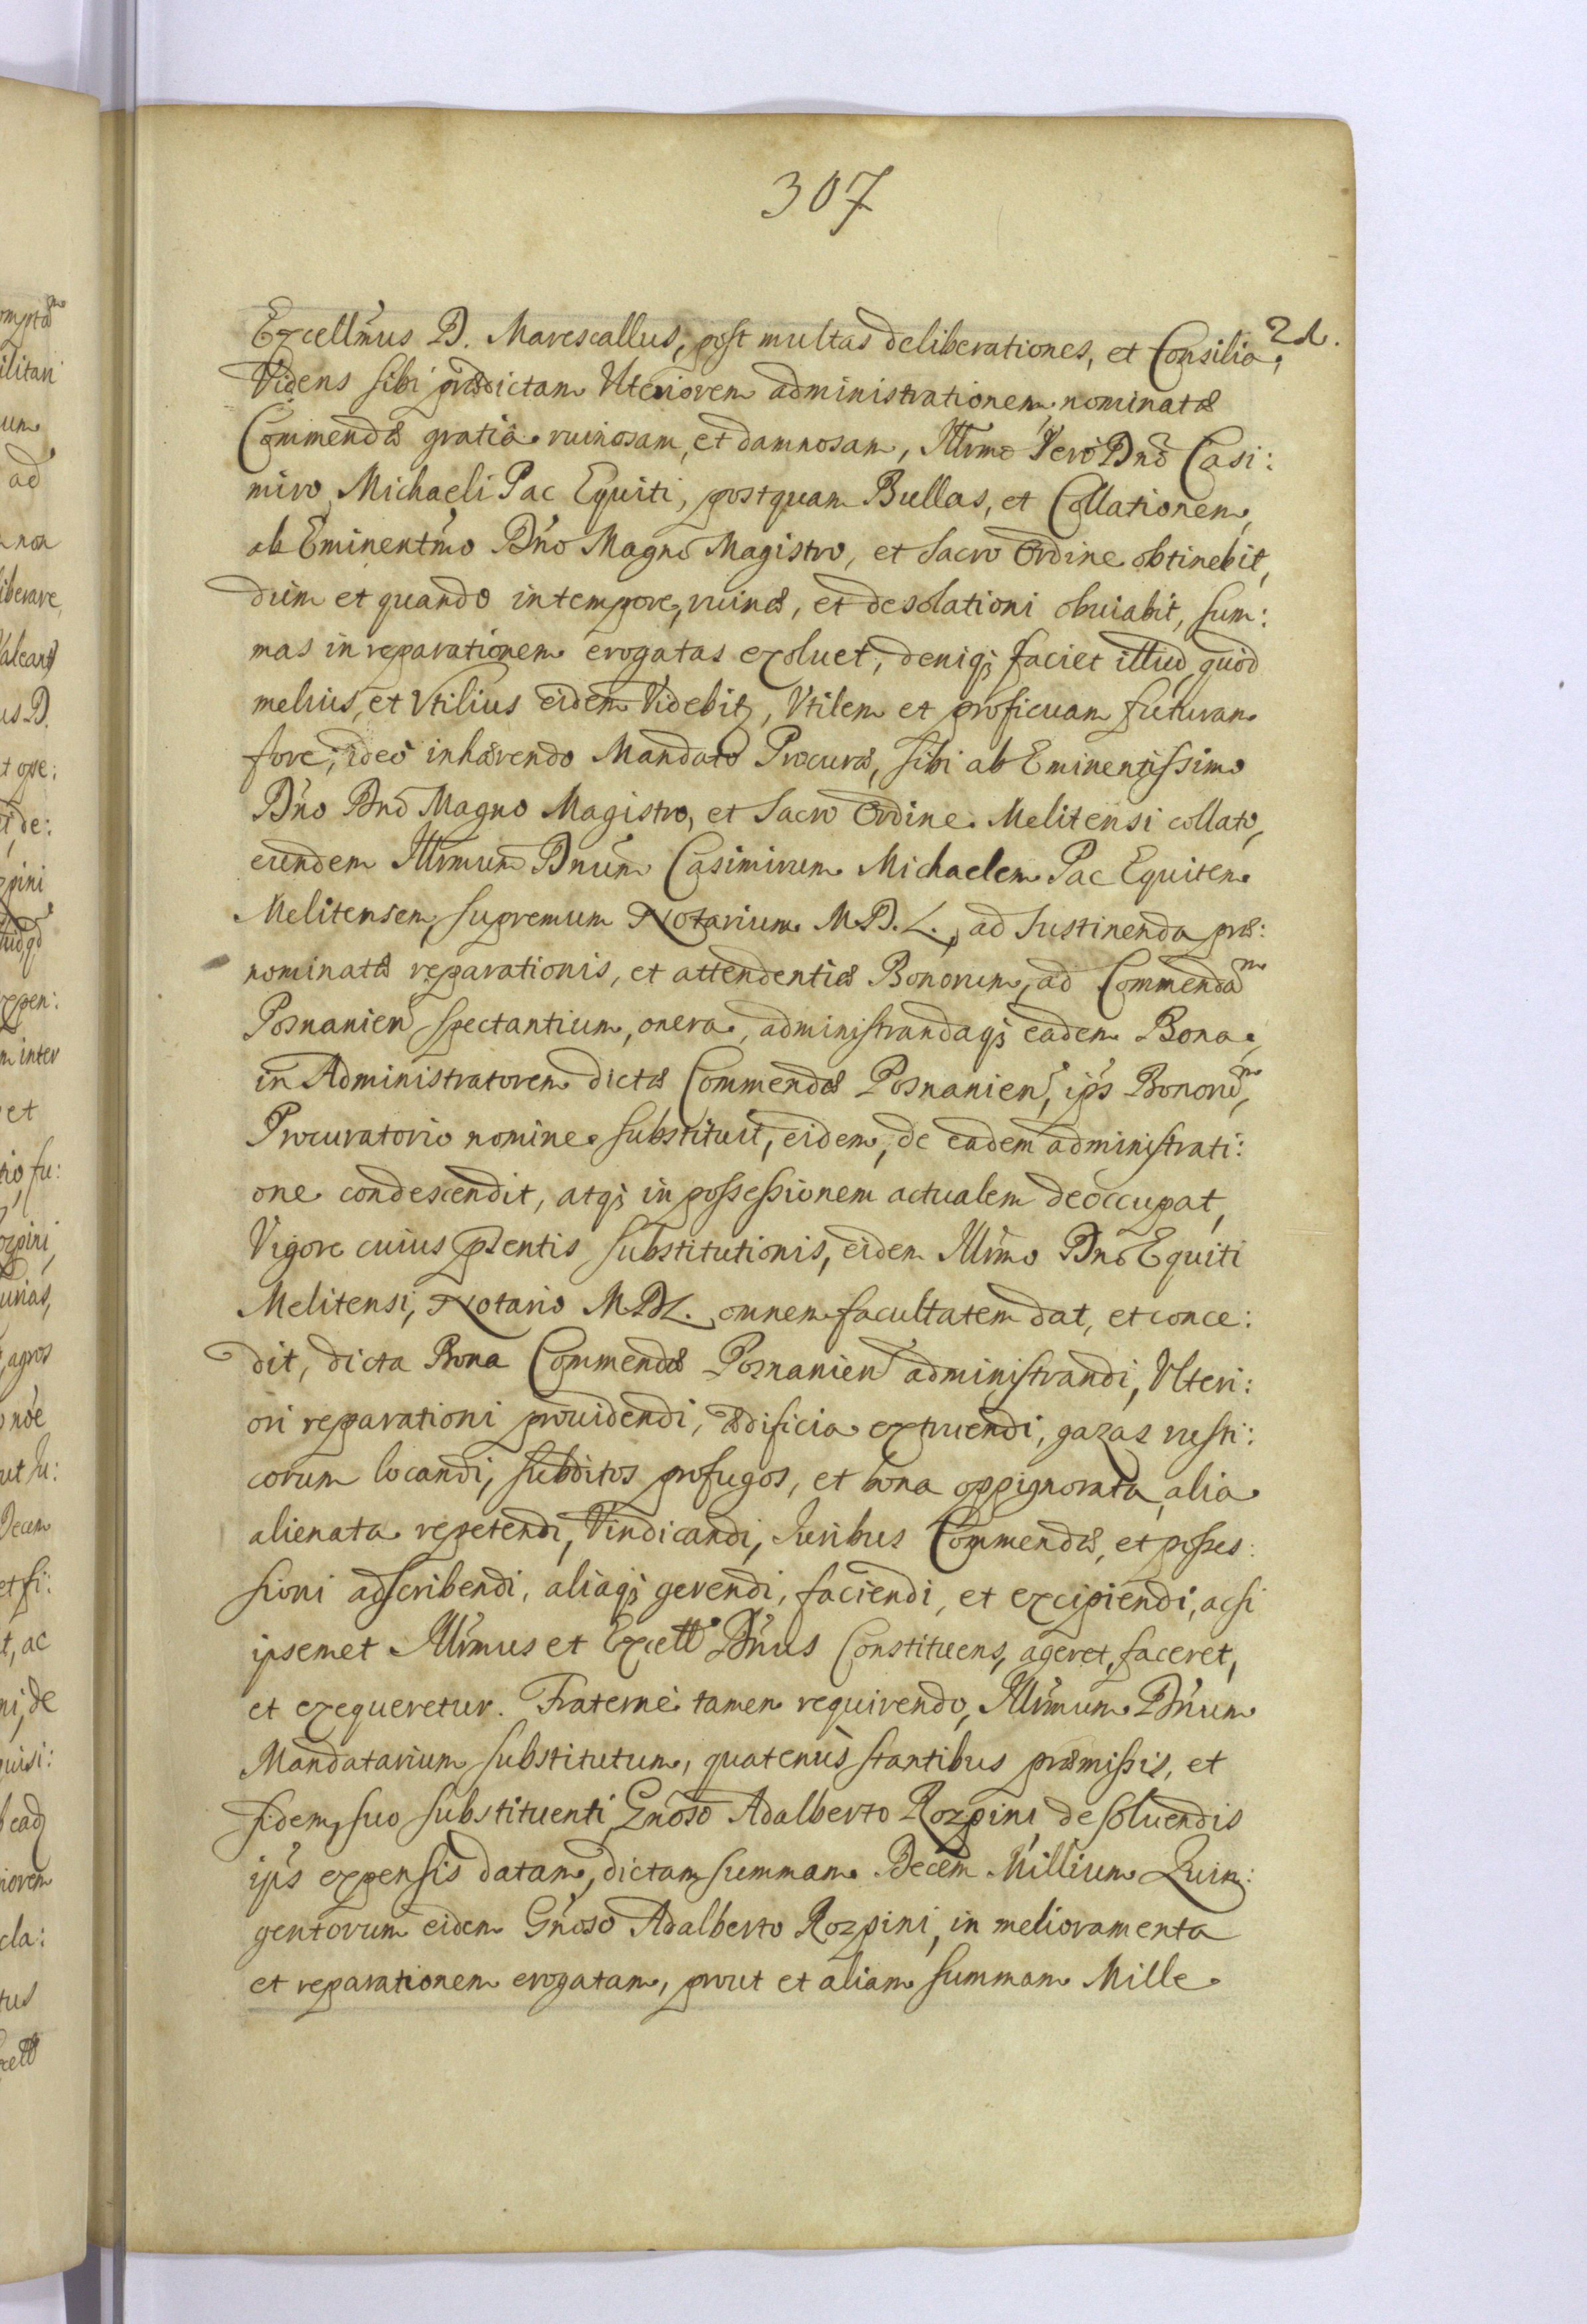 307
Excellm̃us D. Marescallus, post multas deliberationes, et Consilia,
Videns sibi prædictam Ulteriorem administrationem nominatæ
Commendæ gratia ruinosam, et damnosam, Illrmo Vero Dnõ Casi:
miro Michaeli Pac Equiti, postquam Bullas, et Collationem,
ab Eminentm̃o Dño Magno Magistro, et Sacro Ordine obtinebit,
dum et quando intempore, ruinæ, et desolationi obuiabit, sum:
mas in reparationem erogatas exoluet, deniqȝ faciet illud, quod
melius, et Vtilius eidem Videbitȝ, Vtilem et proficuam futuram
fore, ideo inhærendo Mandato Procuræ, sibi ab Eminentissimo
Dño Dnõ Magno Magistro, et Sacro Ordine Melitensi collato,
eundem Illrmum Dnum Casimirum Michaelem Pac Equitem
Melitensem, supremum Notarium M.D.L., ad sustinenda præ:
nominatæ reparationis, et attendentiæ Bonorum, ad Commendam
Posnanien̄ spectantium, onera, administrandaqȝ eadem Bona,
in Administratorem dictæ Commendæ Posnanien̄, ips Bonorum,
Procuratorio nomine substituit, eidem, de eadem administrati:
one condescendit, atqȝ in possessionem actualem deoccupat,
Vigore cuius pſentis substitutionis, eidem Illrmo Dnõ Equiti
Melitensi, Notario MDL. omnem facultatem dat, et conce:
dit, dicta Bona Commendæ Posnanien̄ administrandi, Ulteri:
ori reparationi prouidendi, ædificia extruendi, gazas rusti:
corum locandi, subditos profugos, et bona oppignorata, alia
alienata repetendi, Vindicandi, Iuribus Commendæ, et posses:
sioni adscribendi, aliaqȝ gerendi, faciendi, et excipiendi, acsi
ipsemet Illrmus et Excell Dñus Constituens, ageret, faceret,
et exequeretur. Fraternè tamen requirendo, Illrmum Dñum
Mandatarium substitutum, quatenùs stantibus præmissis, et
fidem, suo substituenti Gnõso Adalberto Rozpini de soluendis
ips expensis datam, dictam summam Decem Millium Quin:
gentorum eidem Gñoso Adalberto Rozpini, in melioramenta
et reparationem erogatam, prout et aliam summam Mille